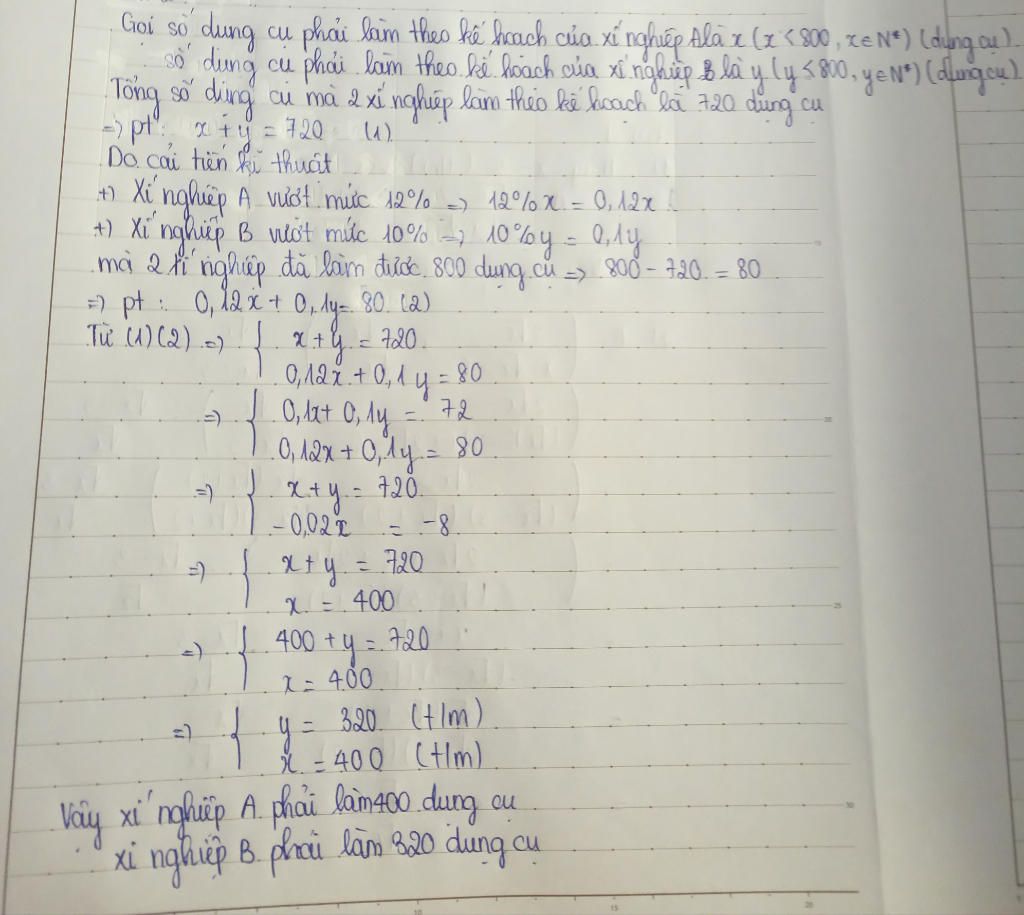 Gọi số dụng cụ phải làm theo kế hoạch của xí nghiệp A là x (x < 800, x ∈ N*) (dụng cụ).
số dụng cụ phải làm theo kế hoạch của xí nghiệp B là y (y < 800, y ∈ N*) (dụng cụ)
Tổng số dụng cụ mà 2 xí nghiệp làm theo kế hoạch là 720 dụng cụ
=> pt: x + y = 720 (1)
Do cải tiến kĩ thuật
+) Xí nghiệp A vượt mức 12% => 12%x = 0,12x
+) Xí nghiệp B vượt mức 10% => 10%y = 0,1y
mà 2 xí nghiệp đã làm được 800 dụng cụ => 800 - 720 = 80
=> pt: 0,12x + 0,1y = 80 (2)
Từ (1)(2) => { x + y = 720
0,12x + 0,1y = 80
=> { 0,1x + 0,1y = 72
0,12x + 0,1y = 80
=> { x + y = 720
-0,02x = -8
=> { x + y = 720
x = 400
=> { 400 + y = 720
x = 400
=> { y = 320 (t/m)
x = 400 (t/m)
Vậy xí nghiệp A phải làm 400 dụng cụ
xí nghiệp B phải làm 320 dụng cụ